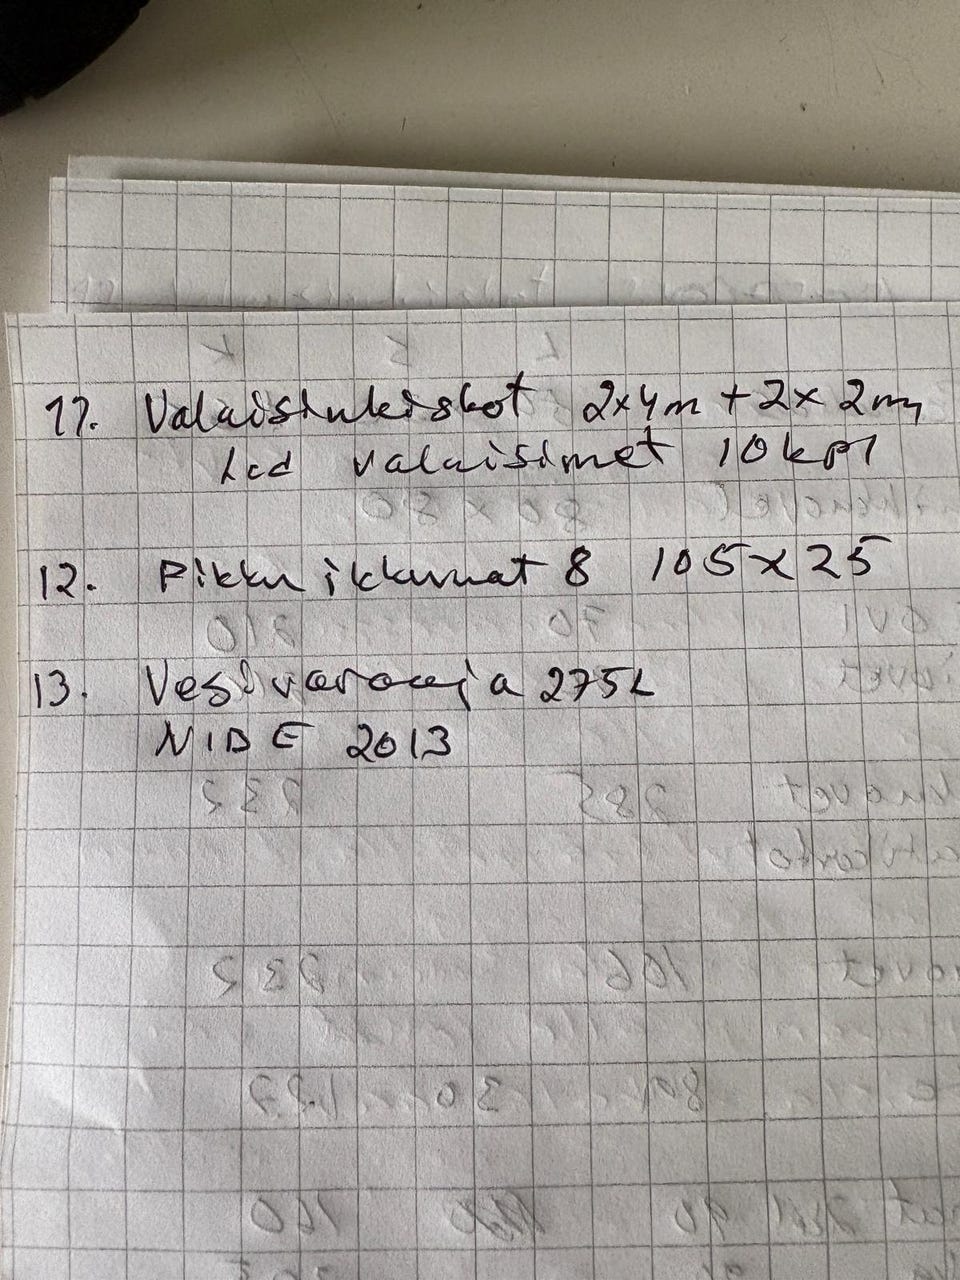 11. Valaisinkiskot 2x4m + 2x 2m
Led valaisimet 10 kpl
12. Pikku ikkunat 8 105 x 25
13. Vesivaraaja 275L
NIBE 2013